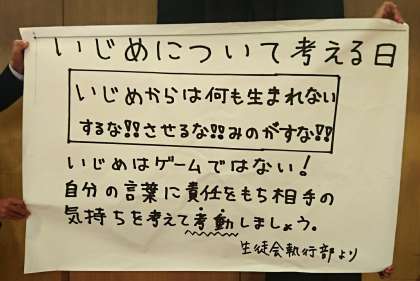 いじめについて考える日
いじめからは何も生まれない
するな!!させるな!!みのがすな!!
いじめはゲームではない!
自分の言葉に責任をもち相手の
気持ちを考えて考動しましょう。
生徒会執行部より